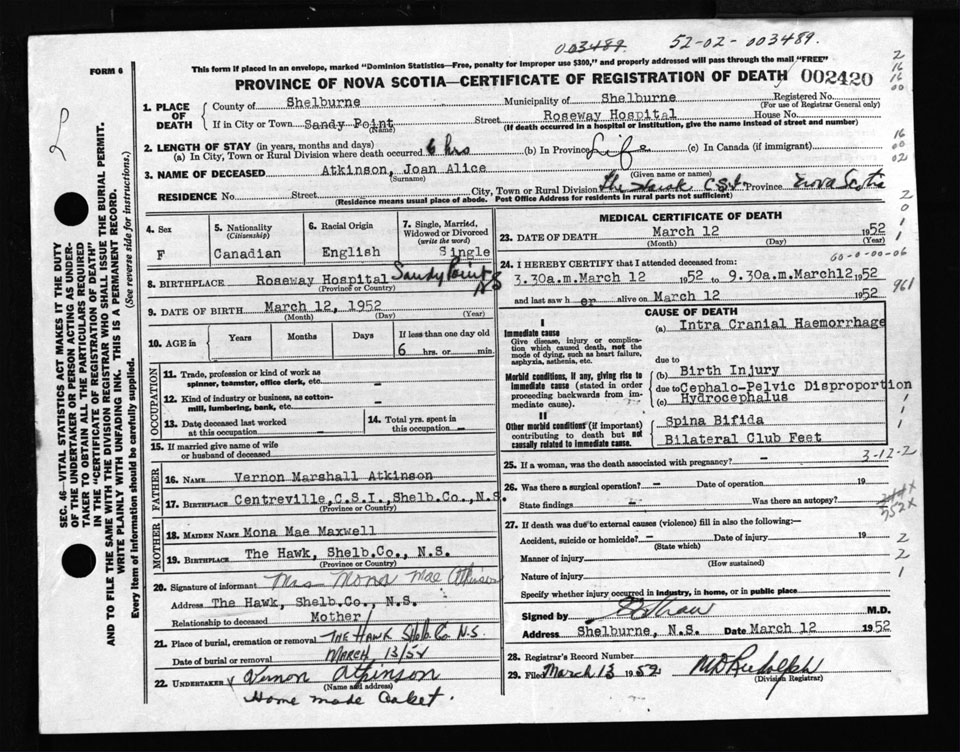 003489 52-02-003489.
FORM 6
This form if placed in an envelope, marked "Dominion Statistics—Free, penalty for improper use $300," and properly addressed will pass through the mail "FREE"
PROVINCE OF NOVA SCOTIA—CERTIFICATE OF REGISTRATION OF DEATH 002420
1. PLACE OF DEATH
County of Shelburne Municipality of Shelburne Registered No.
(For use of Registrar General only)
If in City or Town Sandy Point Street Roseway Hospital House No.
(Name) (If death occurred in a hospital or institution, give the name instead of street and number)
2. LENGTH OF STAY (in years, months and days)
(a) In City, Town or Rural Division where death occurred 6 hrs (b) In Province Life (c) In Canada (if immigrant)
3. NAME OF DECEASED Atkinson, Joan Alice
(Surname) (Given name or names)
RESIDENCE No. Street City, Town or Rural Division The Hawk C.S.I. Province Nova Scotia
(Residence means usual place of abode. Post Office Address for residents in rural parts not sufficient)
4. Sex
F
5. Nationality
(Citizenship)
Canadian
6. Racial Origin
English
7. Single, Married, Widowed or Divorced
(write the word)
Single
8. BIRTHPLACE Roseway Hospital Sandy Point NS
(Province or Country)
9. DATE OF BIRTH March 12, 1952
(Month) (Day) (Year)
10. AGE in Years Months Days If less than one day old
6 hrs. or min.
OCCUPATION
11. Trade, profession or kind of work as spinner, teamster, office clerk, etc. -
12. Kind of industry or business, as cotton-mill, lumbering, bank, etc. -
13. Date deceased last worked at this occupation -
14. Total yrs. spent in this occupation -
15. If married give name of wife or husband of deceased
FATHER
16. NAME Vernon Marshall Atkinson
17. BIRTHPLACE Centreville, C.S.I., Shelb.Co., N.S.
(Province or Country)
MOTHER
18. MAIDEN NAME Mona Mae Maxwell
19. BIRTHPLACE The Hawk, Shelb.Co., N.S.
(Province or Country)
20. Signature of informant Mrs Mona Mae Atkinson
Address The Hawk, Shelb.Co., N.S.
Relationship to deceased Mother
21. Place of burial, cremation or removal THE HAWK Shelb. Co. N.S.
Date of burial or removal MARCH 13/52
22. UNDERTAKER Vernon Atkinson
(Name and address)
Home made Casket.
MEDICAL CERTIFICATE OF DEATH
23. DATE OF DEATH March 12 1952
(Month) (Day) (Year)
24. I HEREBY CERTIFY that I attended deceased from:
3.30a.m. March 12 1952 to 9.30a.m. March12 1952
and last saw h er alive on March 12 1952
CAUSE OF DEATH
I
Immediate cause
Give disease, injury or complication which caused death, not the mode of dying, such as heart failure, asphyxia, asthenia, etc.
(a) Intra Cranial Haemorrhage
due to
Morbid conditions, if any, giving rise to immediate cause (stated in order proceeding backwards from immediate cause).
(b) Birth Injury
due to Cephalo-Pelvic Disproportion
(c) Hydrocephalus
II
Other morbid conditions (if important) contributing to death but not causally related to immediate cause.
Spina Bifida
Bilateral Club Feet
25. If a woman, was the death associated with pregnancy? -
3-12-2
26. Was there a surgical operation? - Date of operation 19
State findings - Was there an autopsy?
752X
27. If death was due to external causes (violence) fill in also the following:—
Accident, suicide or homicide? - Date of injury 19
(State which)
Manner of injury
(How sustained)
Nature of injury
Specify whether injury occurred in industry, in home, or in public place
Signed by M.D.
Address Shelburne, N.S. Date March 12 1952
28. Registrar's Record Number
29. Filed March 13 1952 MD Rudolph
(Division Registrar)
SEC. 46—VITAL STATISTICS ACT MAKES IT THE DUTY
OF THE UNDERTAKER OR PERSON ACTING AS UNDER-
TAKER TO OBTAIN ALL THE PARTICULARS REQUIRED
IN THE "CERTIFICATE OF REGISTRATION OF DEATH"
AND TO FILE THE SAME WITH THE DIVISION REGISTRAR WHO SHALL ISSUE THE BURIAL PERMIT.
WRITE PLAINLY WITH UNFADING INK. THIS IS A PERMANENT RECORD.
Every item of information should be carefully supplied. (See reverse side for instructions.)
2
16
16
00
16
00
02
961